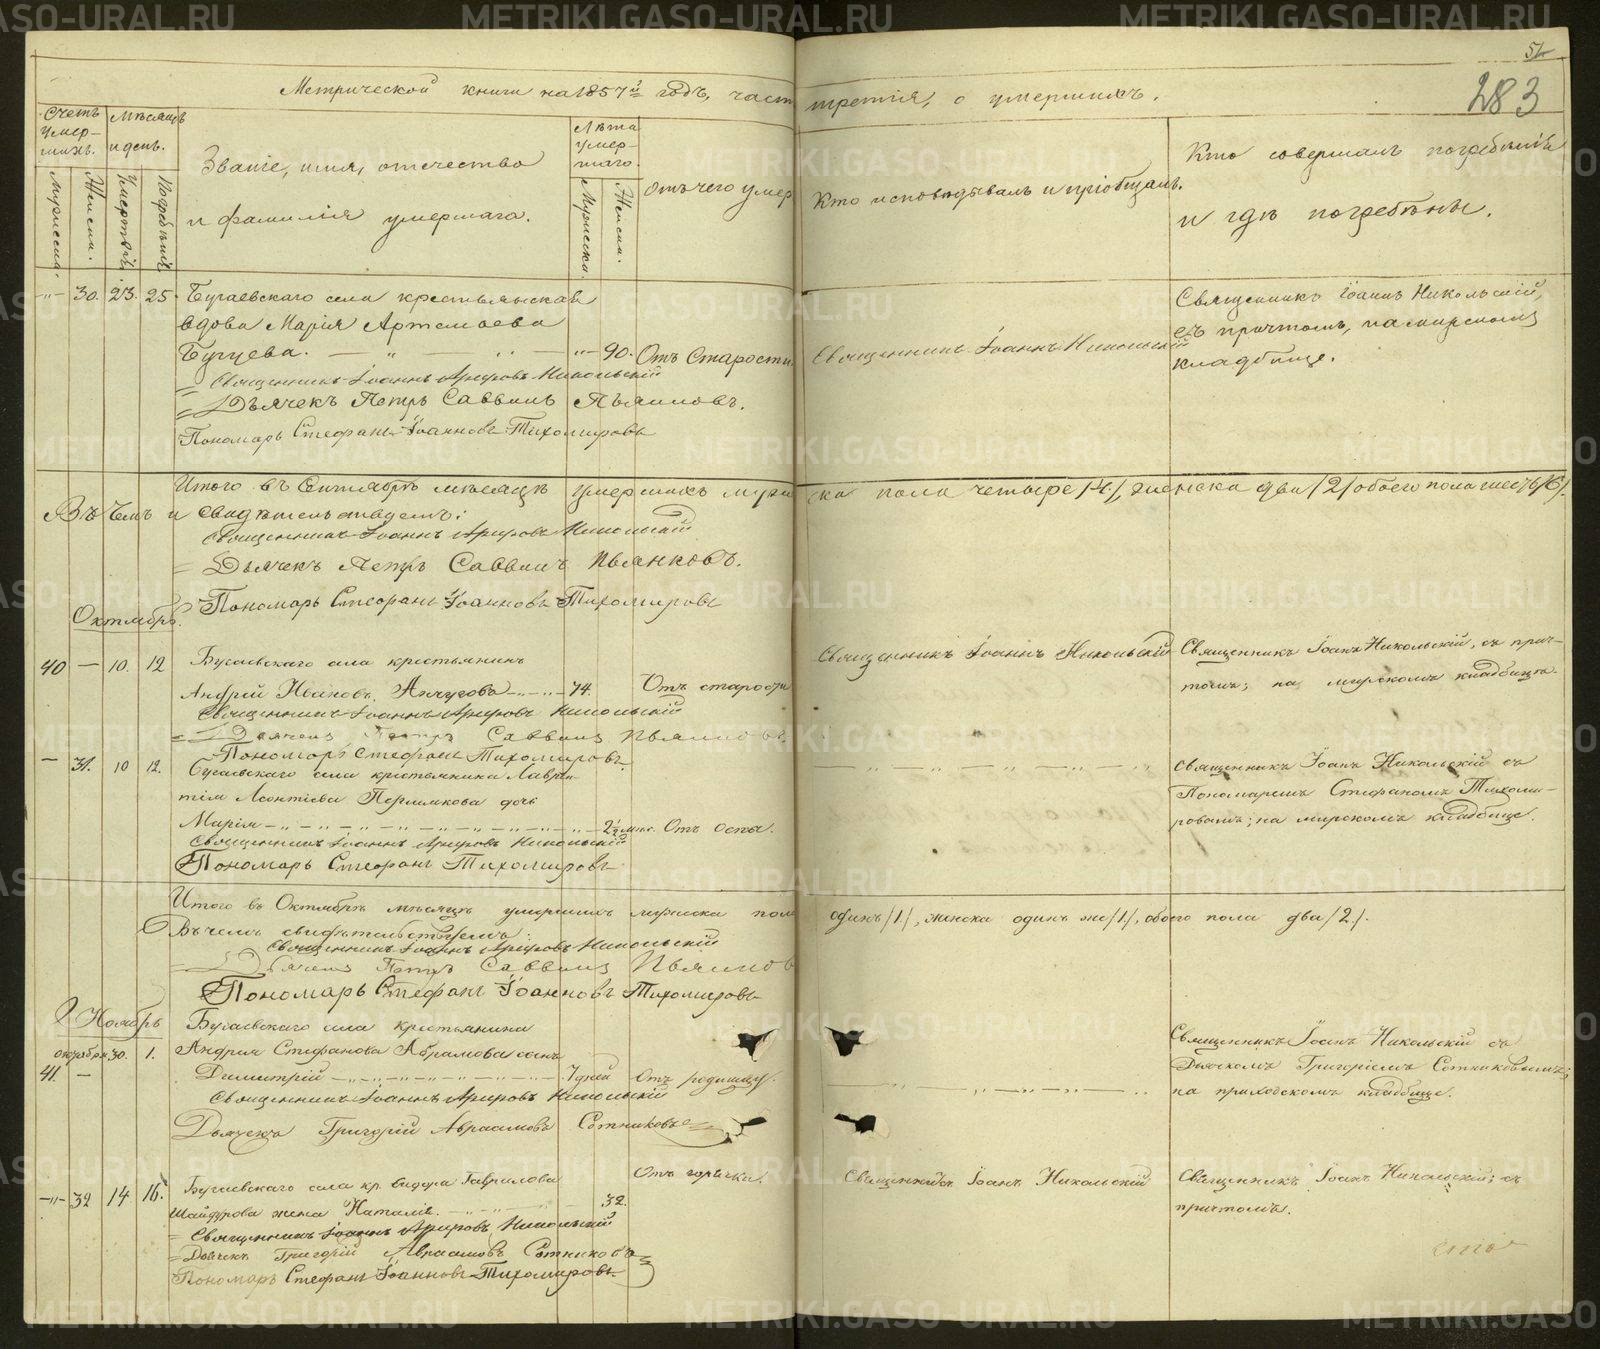 Метрической книги на 1857й годъ, часть третія, о умершихъ.
52
283
Счетъ умер-шихъ.
Мужеска.
Женска.
Мѣсяцъ и день.
Смерти.
Погребенія.
Званіе, имя, отчество
и фамилія умершаго.
Лѣта умер-шаго.
Мужеска.
Женска.
Отъ чего умер
Кто исповѣдывалъ и пріобщалъ.
Кто совершалъ погребеніе
и гдѣ погребены.
30. 23. 25. Бугаевскаго села крестьянская
вдова Марія Артемьева
90. Отъ Старости.
Священникъ Іоаннъ Никольскій
Священникъ Іоаннъ Никольскій,
съ причтомъ, на мирскомъ
кладбище.
Священникъ Іоаннъ Никольскій
Дьячекъ Петръ Саввинъ Пьянковъ.
Пономарь Стефанъ Іоанновъ Тихомировъ
Итого въ Сентябрѣ мѣсяцѣ умершихъ мужеска пола четыре /4/, женска два /2/ обоего пола шесть /6/.
Въ чемъ и свидѣтельствуемъ:
Священникъ Іоаннъ Никольскій
Дьячекъ Петръ Саввинъ Пьянковъ.
Пономарь Стефанъ Іоанновъ Тихомировъ
Октябрь.
40 — 10. 12 Бугаевскаго села крестьянинъ
Андрей Ивановъ Анчуговъ 74. Отъ старости
Священникъ Іоаннъ Никольскій
Священникъ Іоаннъ Никольскій, съ прич-
томъ; на мирскомъ кладбище.
Священникъ Іоаннъ Никольскій
Дьячекъ Петръ Саввинъ Пьянковъ
Пономарь Стефанъ Тихомировъ.
— 31. 10 12. Бугаевскаго села крестьянина Лаврен-
тія Леонтіева дочь
Марія 2½ мѣс. Отъ оспы.
Священникъ Іоаннъ Никольскій съ
Пономаремъ Стефаномъ Тихоми-
ровымъ; на мирскомъ кладбище.
Священникъ Іоаннъ Никольскій
Пономарь Стефанъ Тихомировъ
Итого въ Октябрѣ мѣсяцѣ умершихъ мужеска пола одинъ /1/, женска одинъ же /1/, обоего пола два /2/.
Въ чемъ свидѣтельствуемъ:
Священникъ Іоаннъ Никольскій
Дьячекъ Петръ Саввинъ Пьянков
Пономарь Стефанъ Іоанновъ Тихомировъ
Ноябрь
октября 30. 1. Бугаевскаго села крестьянина
Андрея Стефанова Абрамова сынъ
41. — Димитрій 7 дней Отъ родимцу.
Священникъ Іоаннъ Никольскій съ
Дьячкомъ Григоріемъ Сотниковымъ;
на приходскомъ кладбище.
Священникъ Іоаннъ Никольскій
Дьячекъ Григорій Авраамовъ Сотниковъ
32 14 16. Бугаевскаго села кр. Гаврилова
Шайдурова жена Наталія. 32. Отъ горячки.
Священникъ Іоаннъ Никольскій
Священникъ Іоаннъ Никольскій; съ
причтомъ.
Священникъ Іоаннъ Никольскій
Дьячекъ Григорій Авраамовъ Сотниковъ
Пономарь Стефанъ Іоанновъ Тихомировъ.
METRIKI.GASO-URAL.RU